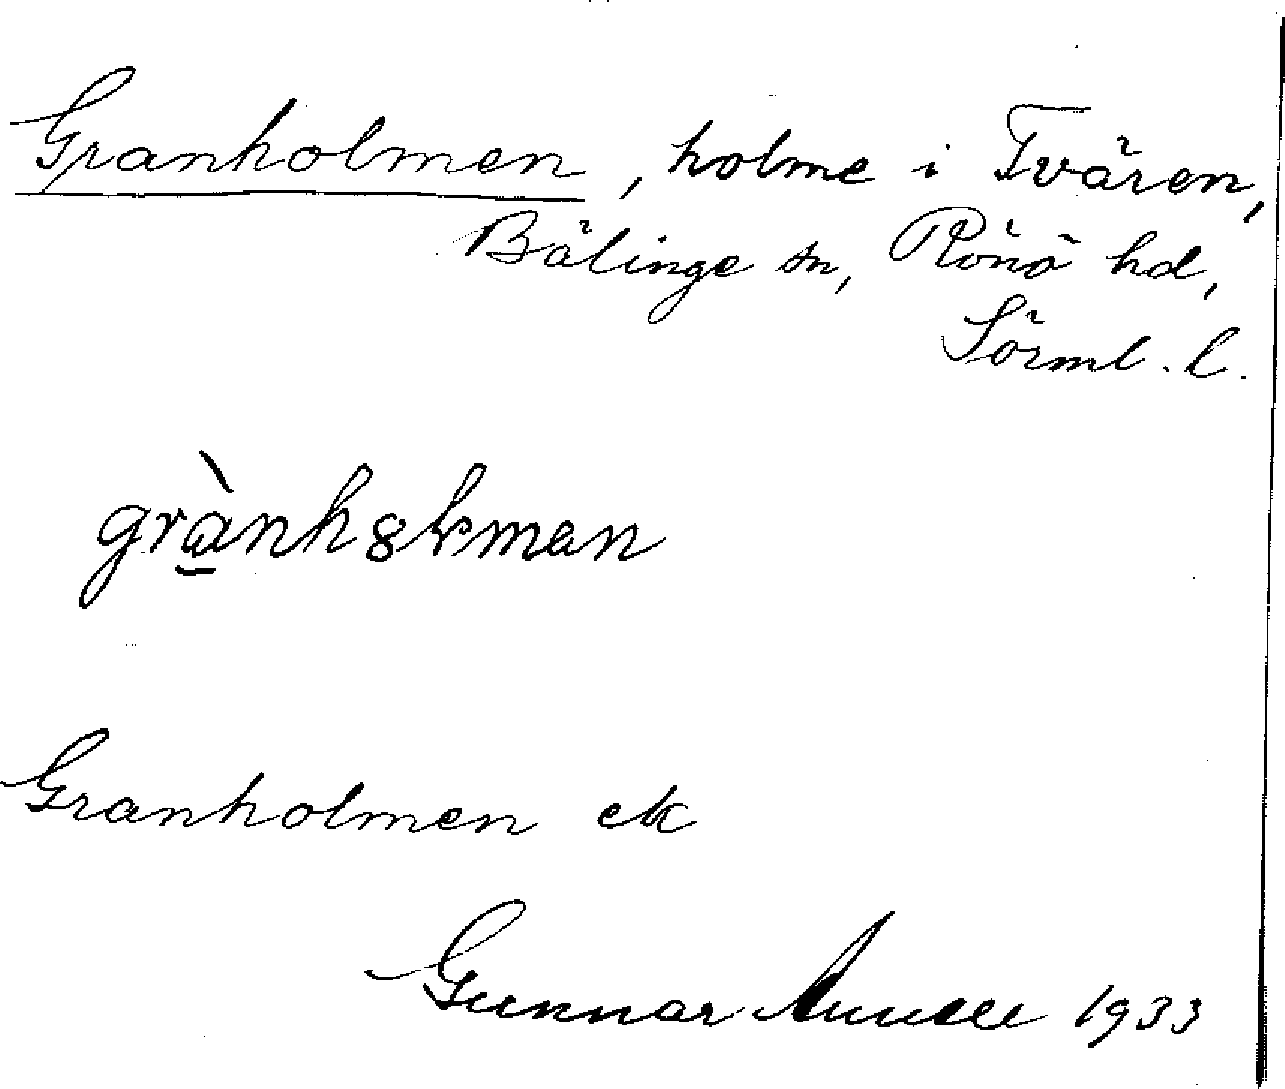 Granholmen, holme i Tvären,
Bälinge sn, Rönö hd,
Sörml. l.
grành8lman
Granholmen ek
Gunnar 1933